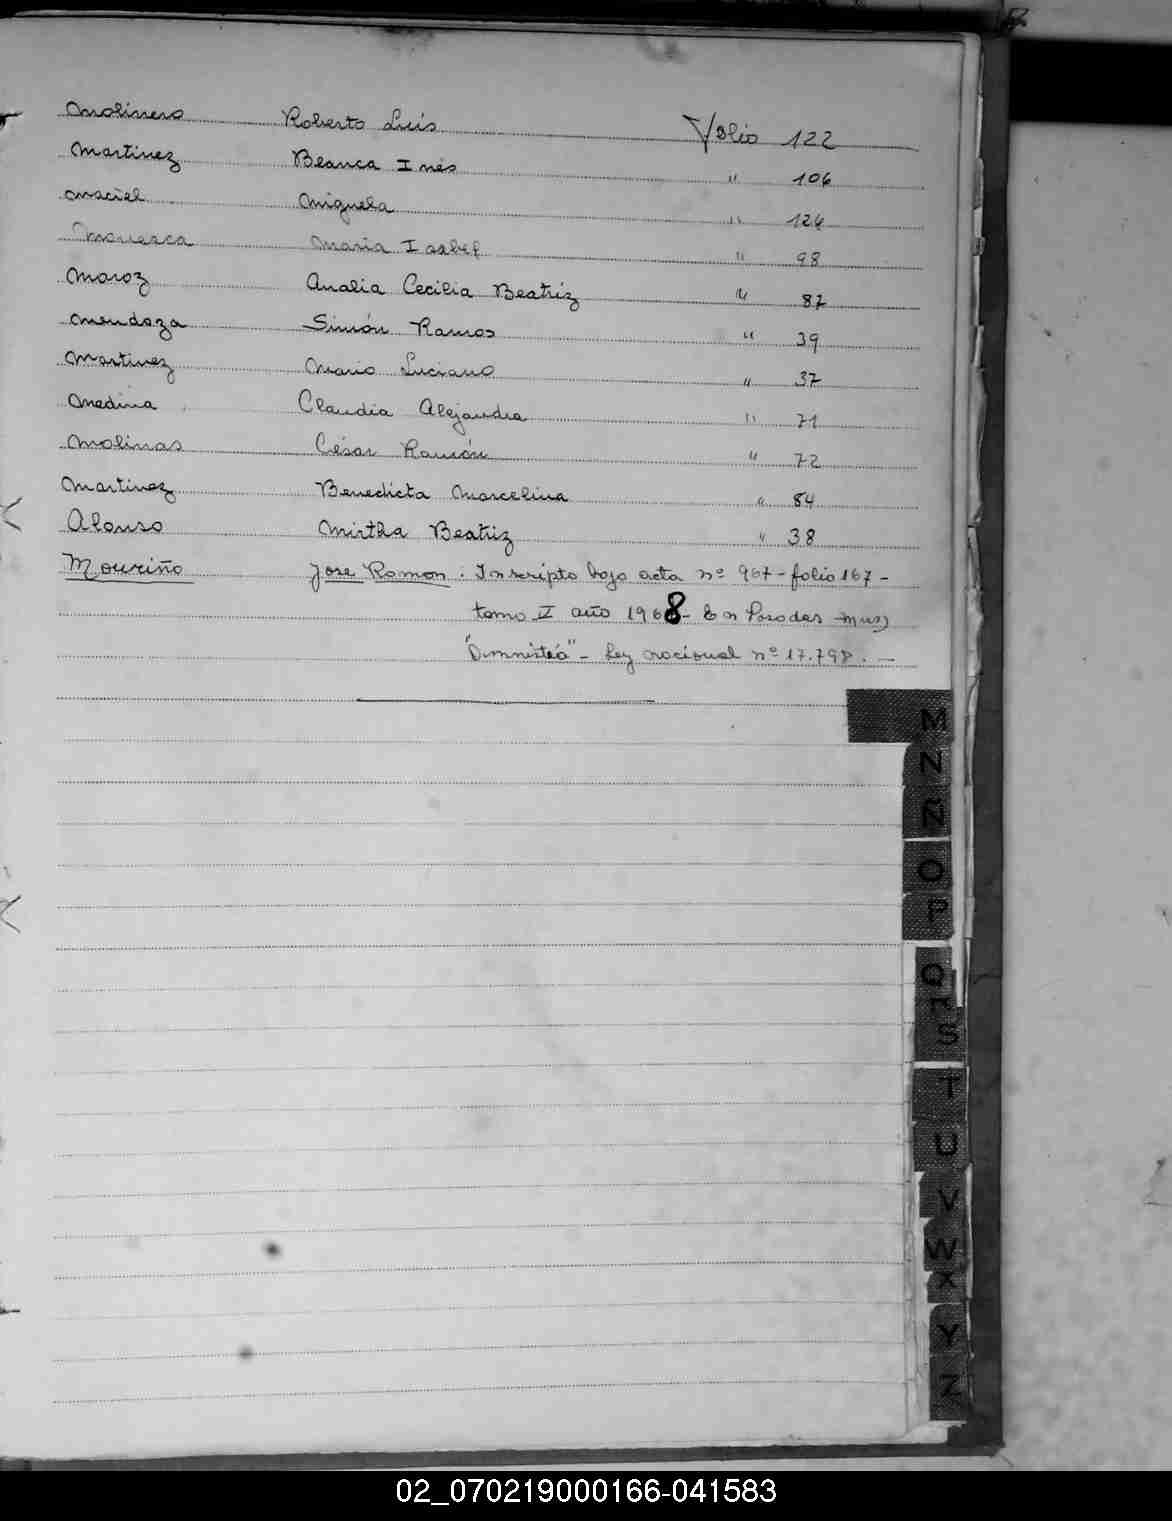 Molinero Roberto Luis Folio 122
Martinez Blanca Inés " 106
Maciel Miguela " 124
Maria Isabel " 98
Maroz Analia Cecilia Beatriz " 87
Mendoza Simón Ramos " 39
Martinez Mario Luciano " 37
Medina Claudia Alejandra " 71
Molinas César Ramón " 72
Martinez Benedicta Marcelina " 84
Alonso Mirtha Beatriz " 38
Mouriño Jose Ramon : Inscripto bajo acta nº 967 - folio 167 -
tomo IV año 1968 - En Posadas
"Amnistía" - Ley nacional nº 17.798. -
M
N
Ñ
O
P
Q
R
S
T
U
V
W
X
Y
Z
02_070219000166-041583